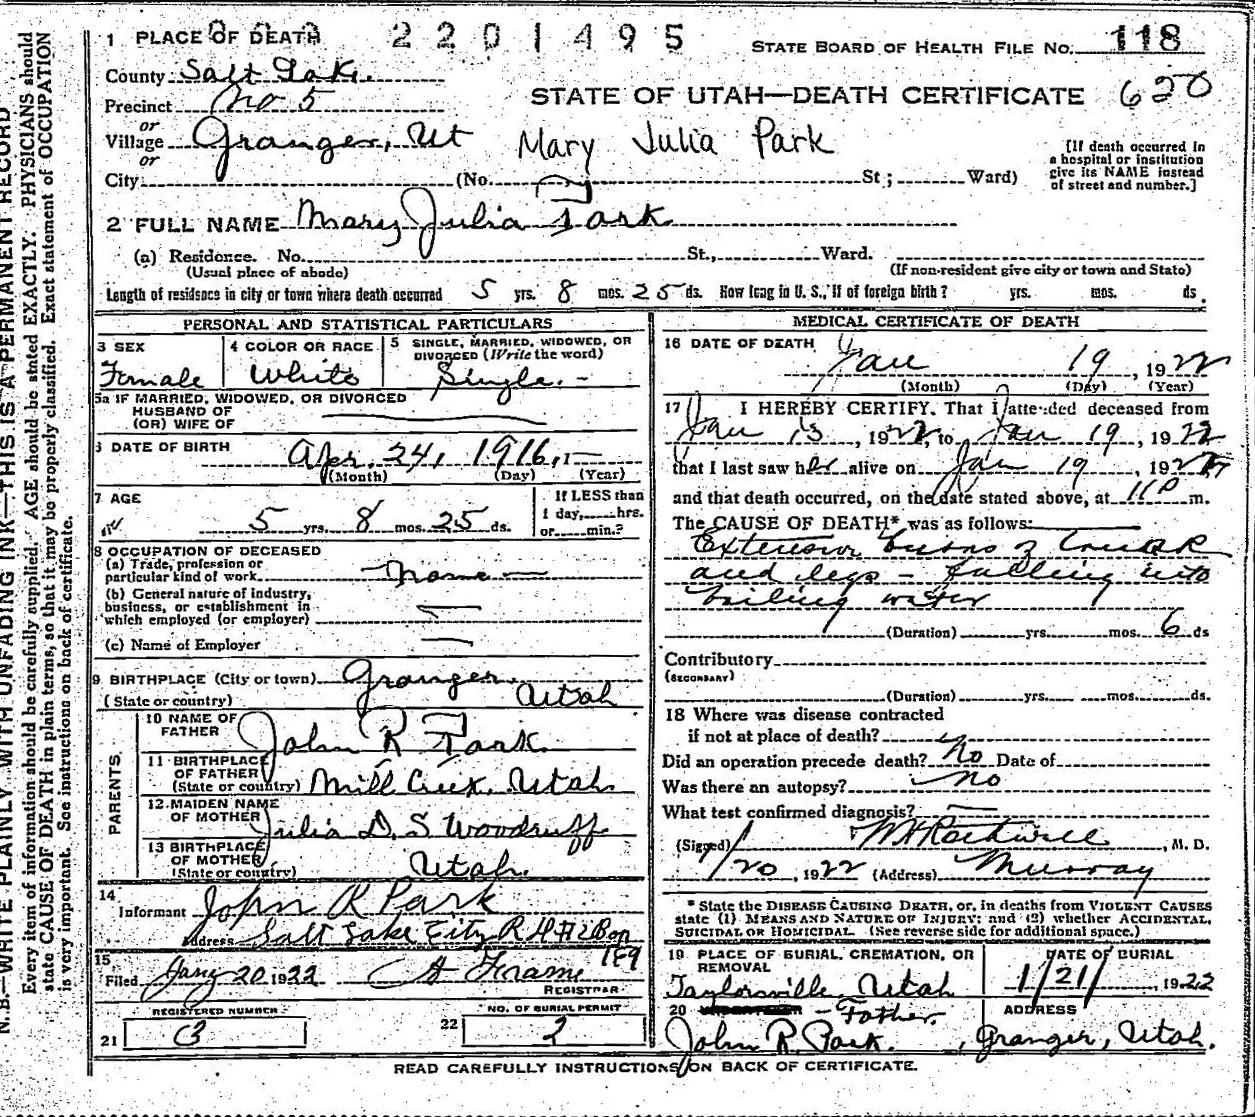 1 PLACE OF DEATH 2201495 STATE BOARD OF HEALTH FILE No. 118
County Salt Lake
Precinct No 5 STATE OF UTAH—DEATH CERTIFICATE 620
or
Village Granger, Ut Mary Julia Park
or
City (No. St; Ward)
[If death occurred in
a hospital or institution
give its NAME instead
of street and number.]
2 FULL NAME Mary Julia Park
(a) Residence. No. St., Ward.
(Usual place of abode) (If non-resident give city or town and State)
Length of residence in city or town where death occurred 5 yrs. 8 mos. 25 ds. How long in U. S., if of foreign birth? yrs. mos. ds.
PERSONAL AND STATISTICAL PARTICULARS
3 SEX
Female
4 COLOR OR RACE
White
5 SINGLE, MARRIED, WIDOWED, OR
DIVORCED (Write the word)
Single.-
5a IF MARRIED, WIDOWED, OR DIVORCED
HUSBAND OF
(OR) WIFE OF
6 DATE OF BIRTH
Apr. 24, 1916, 1
(Month) (Day) (Year)
7 AGE
5 yrs. 8 mos. 25 ds.
If LESS than
1 day, hrs.
or min.?
8 OCCUPATION OF DECEASED
(a) Trade, profession or
particular kind of work None
(b) General nature of industry,
business, or establishment in
which employed (or employer)
(c) Name of Employer
9 BIRTHPLACE (City or town) Granger.
(State or country) Utah
PARENTS
10 NAME OF
FATHER John R Park
11 BIRTHPLACE
OF FATHER
(State or country) Mill Creek, Utah
12 MAIDEN NAME
OF MOTHER Julia D. S Woodruff
13 BIRTHPLACE
OF MOTHER
(State or country) Utah.
14
Informant John R Park
Address Salt Lake City R # 4 Box
169
15
Filed Jany 20 1922
REGISTRAR
REGISTERED NUMBER
21 3
NO. OF BURIAL PERMIT
22 2
MEDICAL CERTIFICATE OF DEATH
16 DATE OF DEATH
Jan 19, 1922
(Month) (Day) (Year)
17 I HEREBY CERTIFY, That I attended deceased from
Jan 13, 1922, to Jan 19, 1922
that I last saw her alive on Jan 19, 1922
and that death occurred, on the date stated above, at 11 P m.
The CAUSE OF DEATH* was as follows:
Extensive burns of trunk
and legs - falling into
boiling water
(Duration) yrs. mos. 6 ds
Contributory
(SECONDARY)
(Duration) yrs. mos. ds.
18 Where was disease contracted
if not at place of death?
Did an operation precede death? No Date of
Was there an autopsy? No
What test confirmed diagnosis?
(Signed) W H Rothwell, M. D.
1/20, 1922 (Address) Murray
* State the DISEASE CAUSING DEATH, or, in deaths from VIOLENT CAUSES
state (1) MEANS AND NATURE OF INJURY; and (2) whether ACCIDENTAL,
SUICIDAL OR HOMICIDAL. (See reverse side for additional space.)
19 PLACE OF BURIAL, CREMATION, OR
REMOVAL
Taylorsville, Utah
DATE OF BURIAL
1/21/, 1922
20 - Father.
John R. Park.
ADDRESS
, Granger, Utah.
READ CAREFULLY INSTRUCTIONS ON BACK OF CERTIFICATE.
N.B.—WRITE PLAINLY WITH UNFADING INK—THIS IS A PERMANENT RECORD
Every item of information should be carefully supplied. AGE should be stated EXACTLY. PHYSICIANS should
state CAUSE OF DEATH in plain terms, so that it may be properly classified. Exact statement of OCCUPATION
is very important. See instructions on back of certificate.